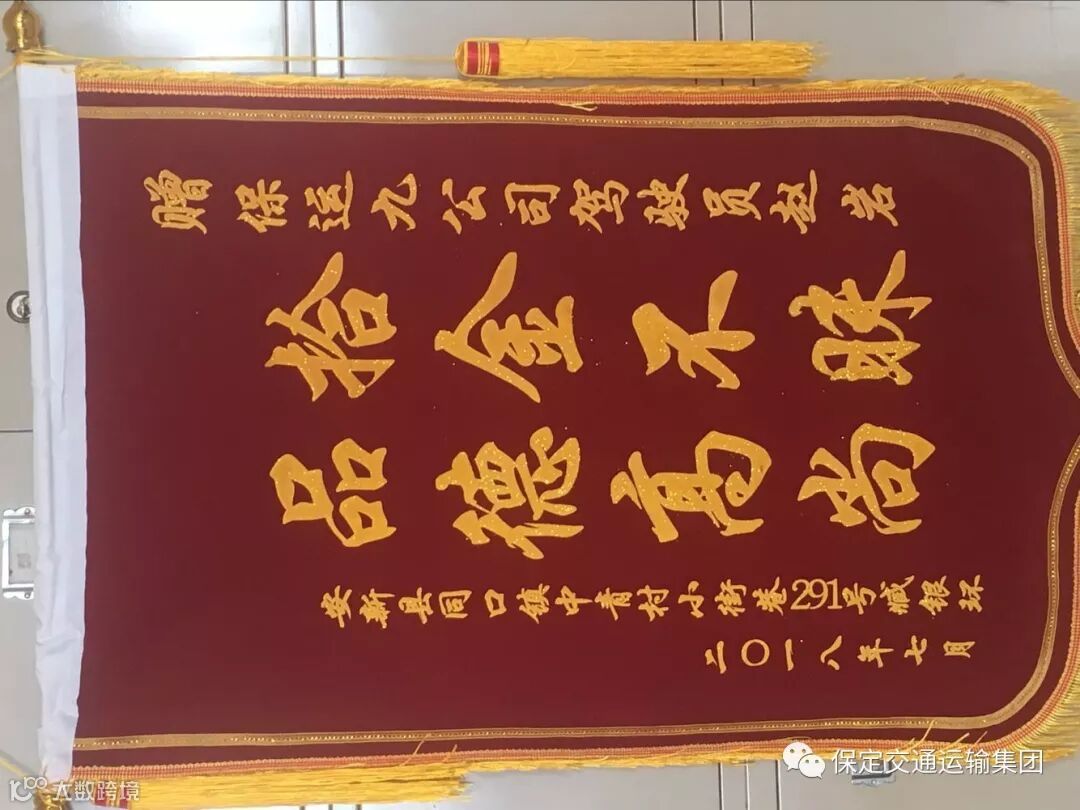 赠保运九公司驾驶员赵岩
拾金不昧
品德高尚
安新县同口镇中青村小街巷291号臧银环
二〇一八年七月
保定交通运输集团
大数跨境